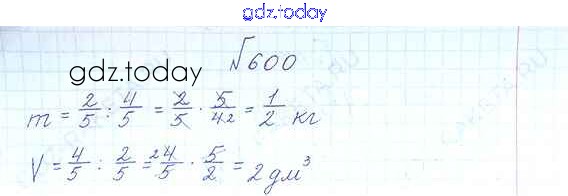 gdz.today
√600
gdz.today
m = 2/5 : 4/5 = 2/5 · 5/4 2 = 1/2 кг
V = 4/5 : 2/5 = 2 4/5 · 5/2 = 2 дм³